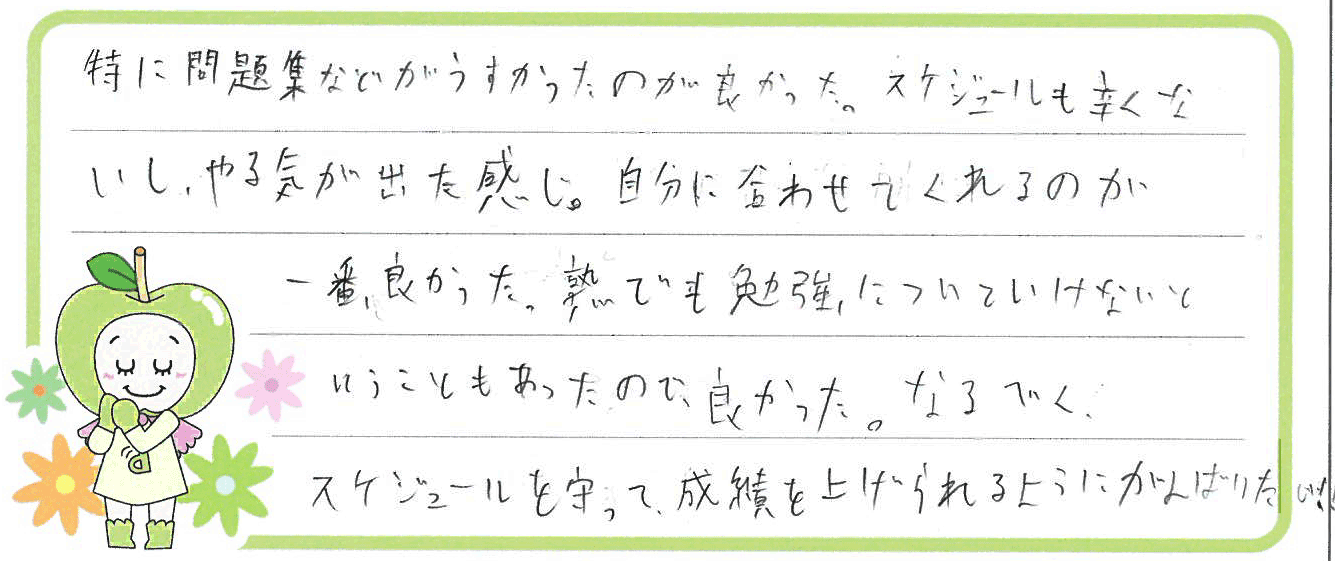 特に問題集などがうすかったのが良かった。スケジュールも辛くな
いし、やる気が出た感じ。自分に合わせてくれるのが
一番、良かった。熟でも勉強、についていけないと
いうこともあったので、良かった。なるべく、
スケジュールを守って、成績を上げられるようにがんばりたい